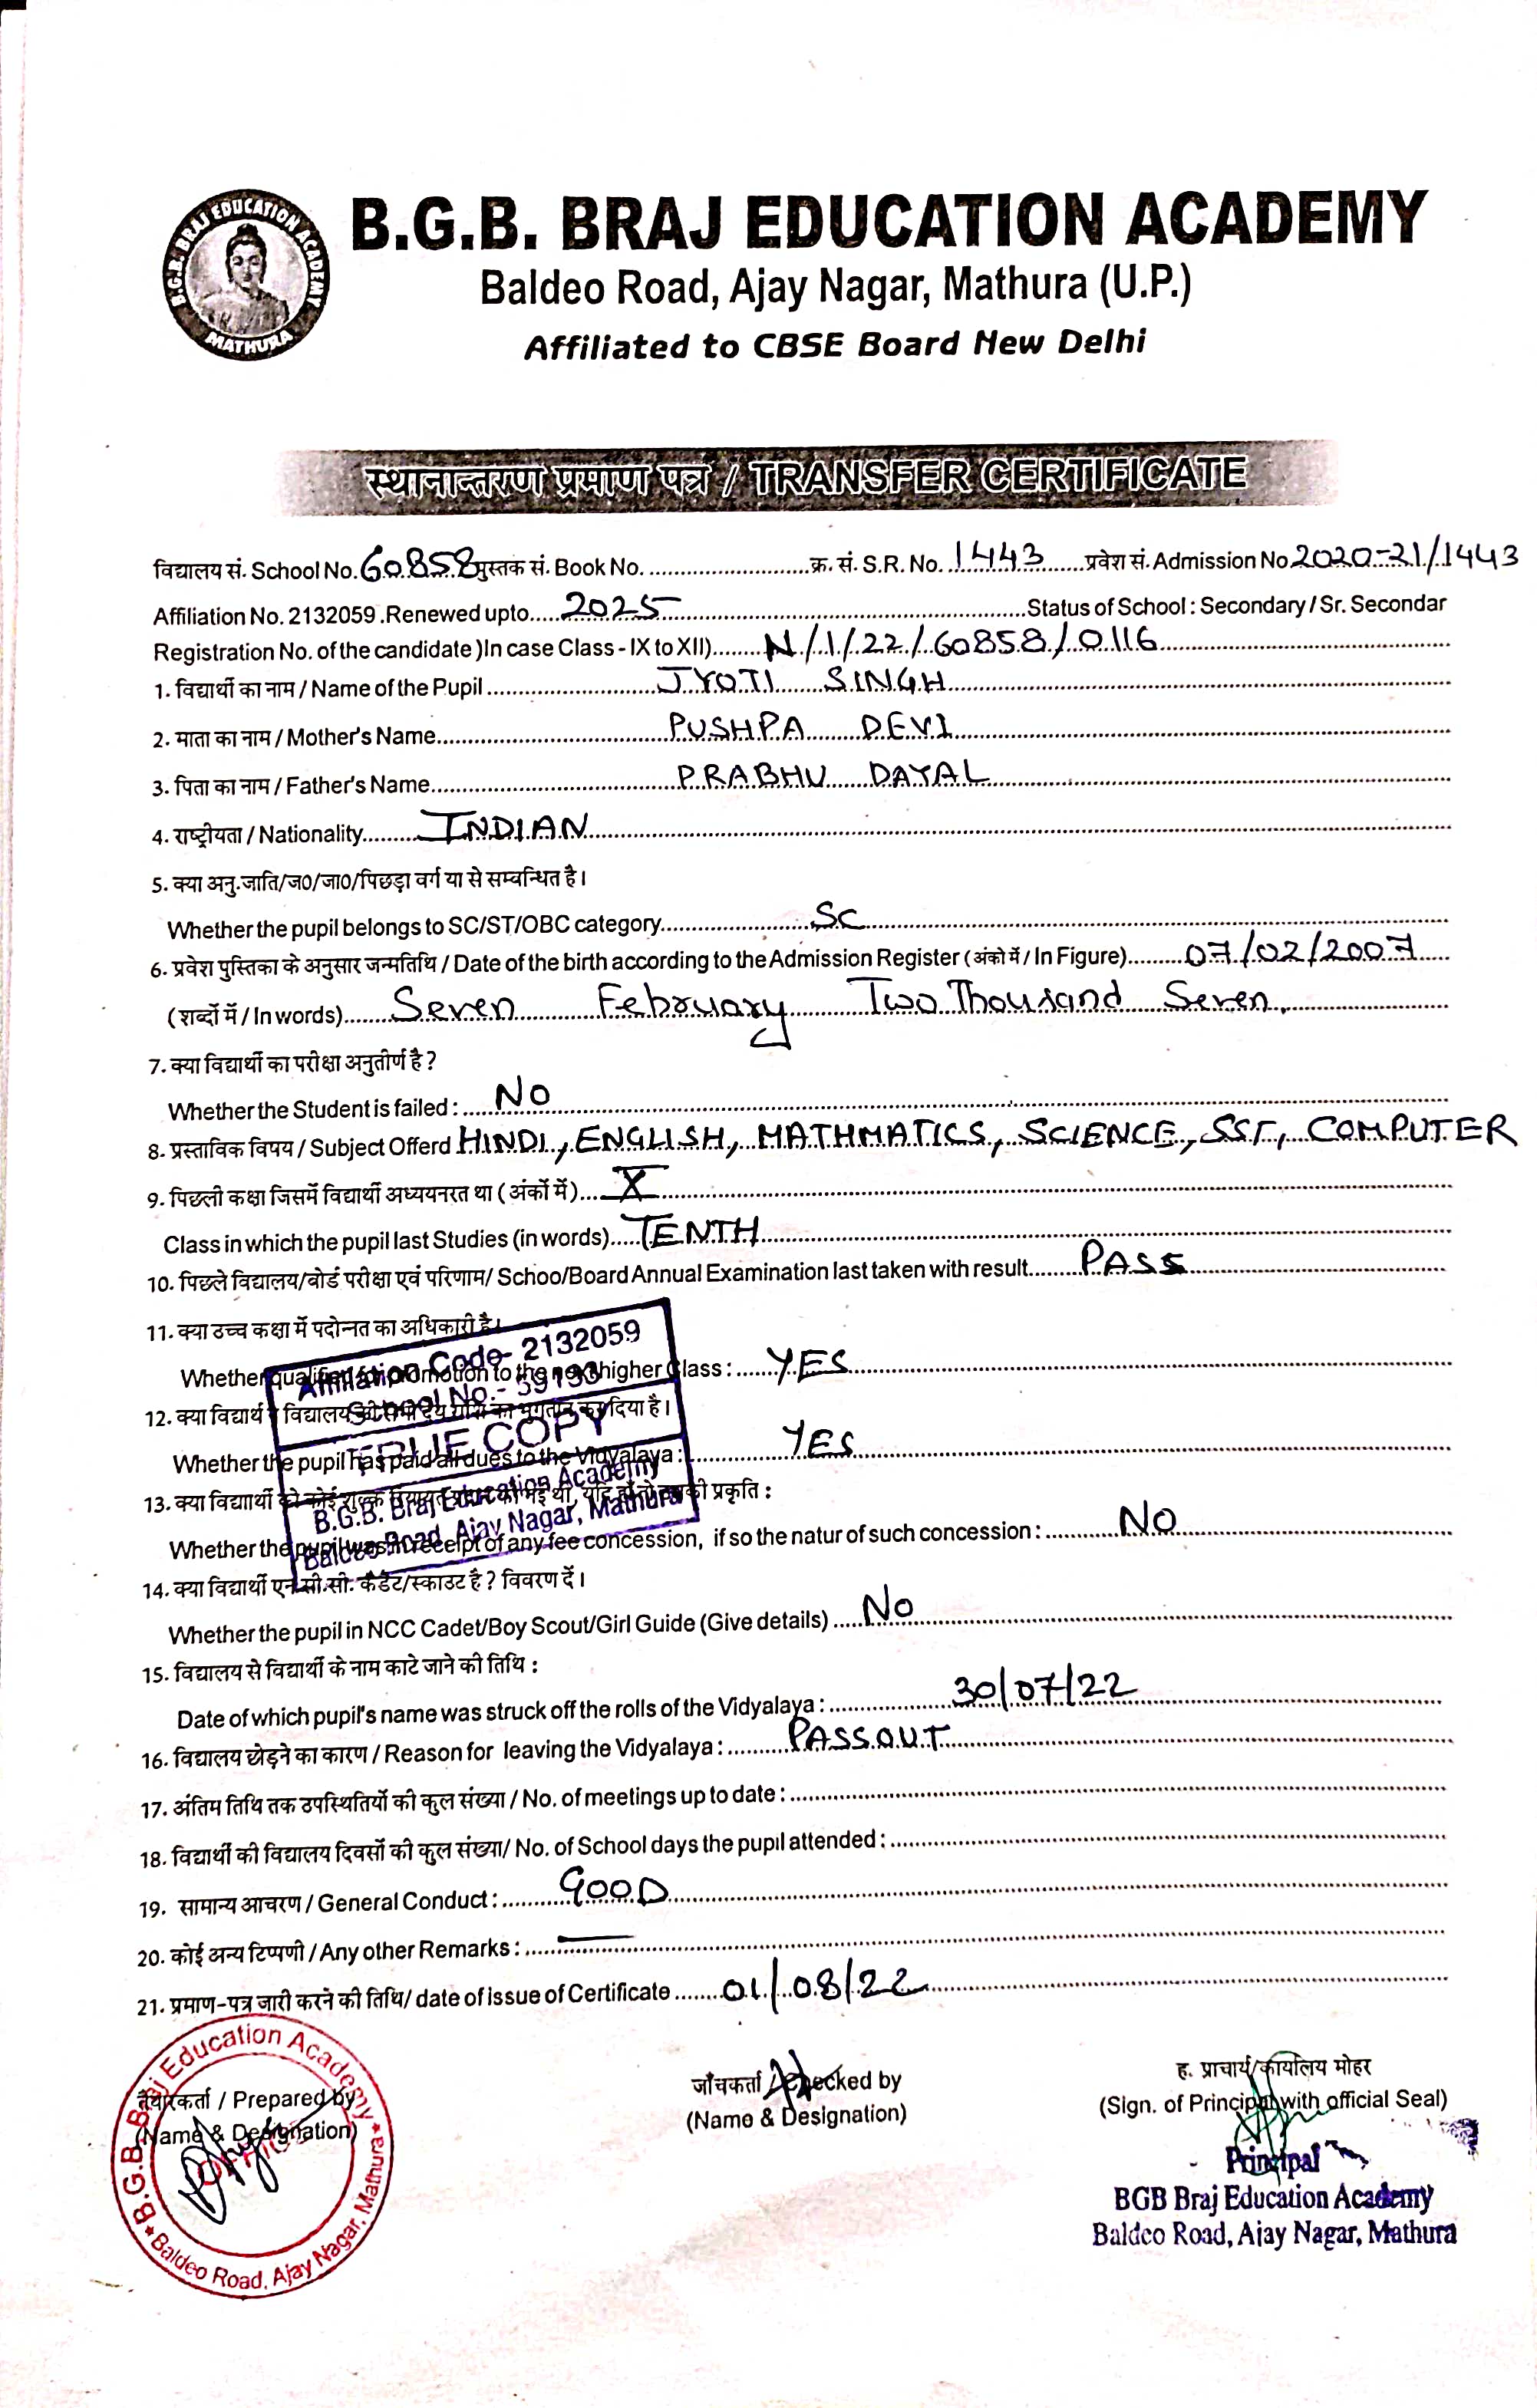 B.G.B. BRAJ EDUCATION ACADEMY
MATHURA
B.G.B. BRAJ EDUCATION ACADEMY
Baldeo Road, Ajay Nagar, Mathura (U.P.)
Affiliated to CBSE Board New Delhi
स्थानान्तरण प्रमाण पत्र / TRANSFER CERTIFICATE
विद्यालय सं. School No. 60858 पुस्तक सं. Book No. .......... क्र. सं. S.R. No. 1443 प्रवेश सं. Admission No 2020-21/1443
Affiliation No. 2132059 .Renewed upto..... 2025 ..........Status of School : Secondary / Sr. Secondar
Registration No. of the candidate )In case Class - IX to XII)......... N/1/22/60858/0116
1. विद्यार्थी का नाम / Name of the Pupil .......... JYOTI SINGH
2. माता का नाम / Mother's Name.......... PUSHPA DEVI
3. पिता का नाम / Father's Name.......... PRABHU DAYAL
4. राष्ट्रीयता / Nationality.......... INDIAN
5. क्या अनु.जाति/ज0/जा0/पिछड़ा वर्ग या से सम्वन्धित है।
Whether the pupil belongs to SC/ST/OBC category.......... SC
6. प्रवेश पुस्तिका के अनुसार जन्मतिथि / Date of the birth according to the Admission Register (अंको में / In Figure).......... 07/02/2007
(शब्दों में / In words).......... Seven February Two Thousand Seven.
7. क्या विद्यार्थी का परीक्षा अनुतीर्ण है ?
Whether the Student is failed : ..... NO
8. प्रस्ताविक विषय / Subject Offerd HINDI, ENGLISH, MATHMATICS, SCIENCE, SST, COMPUTER
9. पिछली कक्षा जिसमें विद्यार्थी अध्ययनरत था (अंकों में).... X
Class in which the pupil last Studies (in words)..... TENTH
10. पिछले विद्यालय/वोर्ड परीक्षा एवं परिणाम/ Schoo/Board Annual Examination last taken with result.......... PASS
11. क्या उच्च कक्षा में पदोन्नत का अधिकारी है।
Whether qualified for promotion to the next higher Class : ...... YES
12. क्या विद्यार्थ ने विद्यालय की सभी देय राशि का भुगतान कर दिया है।
Whether the pupil has paid all dues to the Vidyalaya : .......... YES
13. क्या विद्याार्थी को कोई शुल्क रियायत प्रदान की गई थी, यदि हाँ तो उसकी प्रकृति :
Whether the pupil was in receipt of any fee concession, if so the natur of such concession : .......... NO
14. क्या विद्यार्थी एन.सी.सी. कैडेट/स्काउट है ? विवरण दें।
Whether the pupil in NCC Cadet/Boy Scout/Girl Guide (Give details) ..... No
15. विद्यालय से विद्यार्थी के नाम काटे जाने की तिथि :
Date of which pupil's name was struck off the rolls of the Vidyalaya : .......... 30/07/22
16. विद्यालय छोड़ने का कारण / Reason for leaving the Vidyalaya : .......... PASSOUT
17. अंतिम तिथि तक उपस्थितियों की कुल संख्या / No. of meetings up to date : ..........
18. विद्यार्थी की विद्यालय दिवसों की कुल संख्या/ No. of School days the pupil attended : ..........
19. सामान्य आचरण / General Conduct : .......... GOOD
20. कोई अन्य टिप्पणी / Any other Remarks : .......... —
21. प्रमाण-पत्र जारी करने की तिथि/ date of issue of Certificate ........ 01/08/22
Affiliation Code- 2132059
School No.- 59133
TRUE COPY
B.G.B. Braj Education Academy
Baldeo Road, Ajay Nagar, Mathura
तैयारकर्ता / Prepared by
(Name & Designation)
B.G.B. Braj Education Academy
OFFICE
Baldeo Road, Ajay Nagar, Mathura
जाँचकर्ता / Checked by
(Name & Designation)
ह. प्राचार्य/कार्यालय मोहर
(Sign. of Principal with official Seal)
Principal
BGB Braj Education Academy
Baldeo Road, Ajay Nagar, Mathura